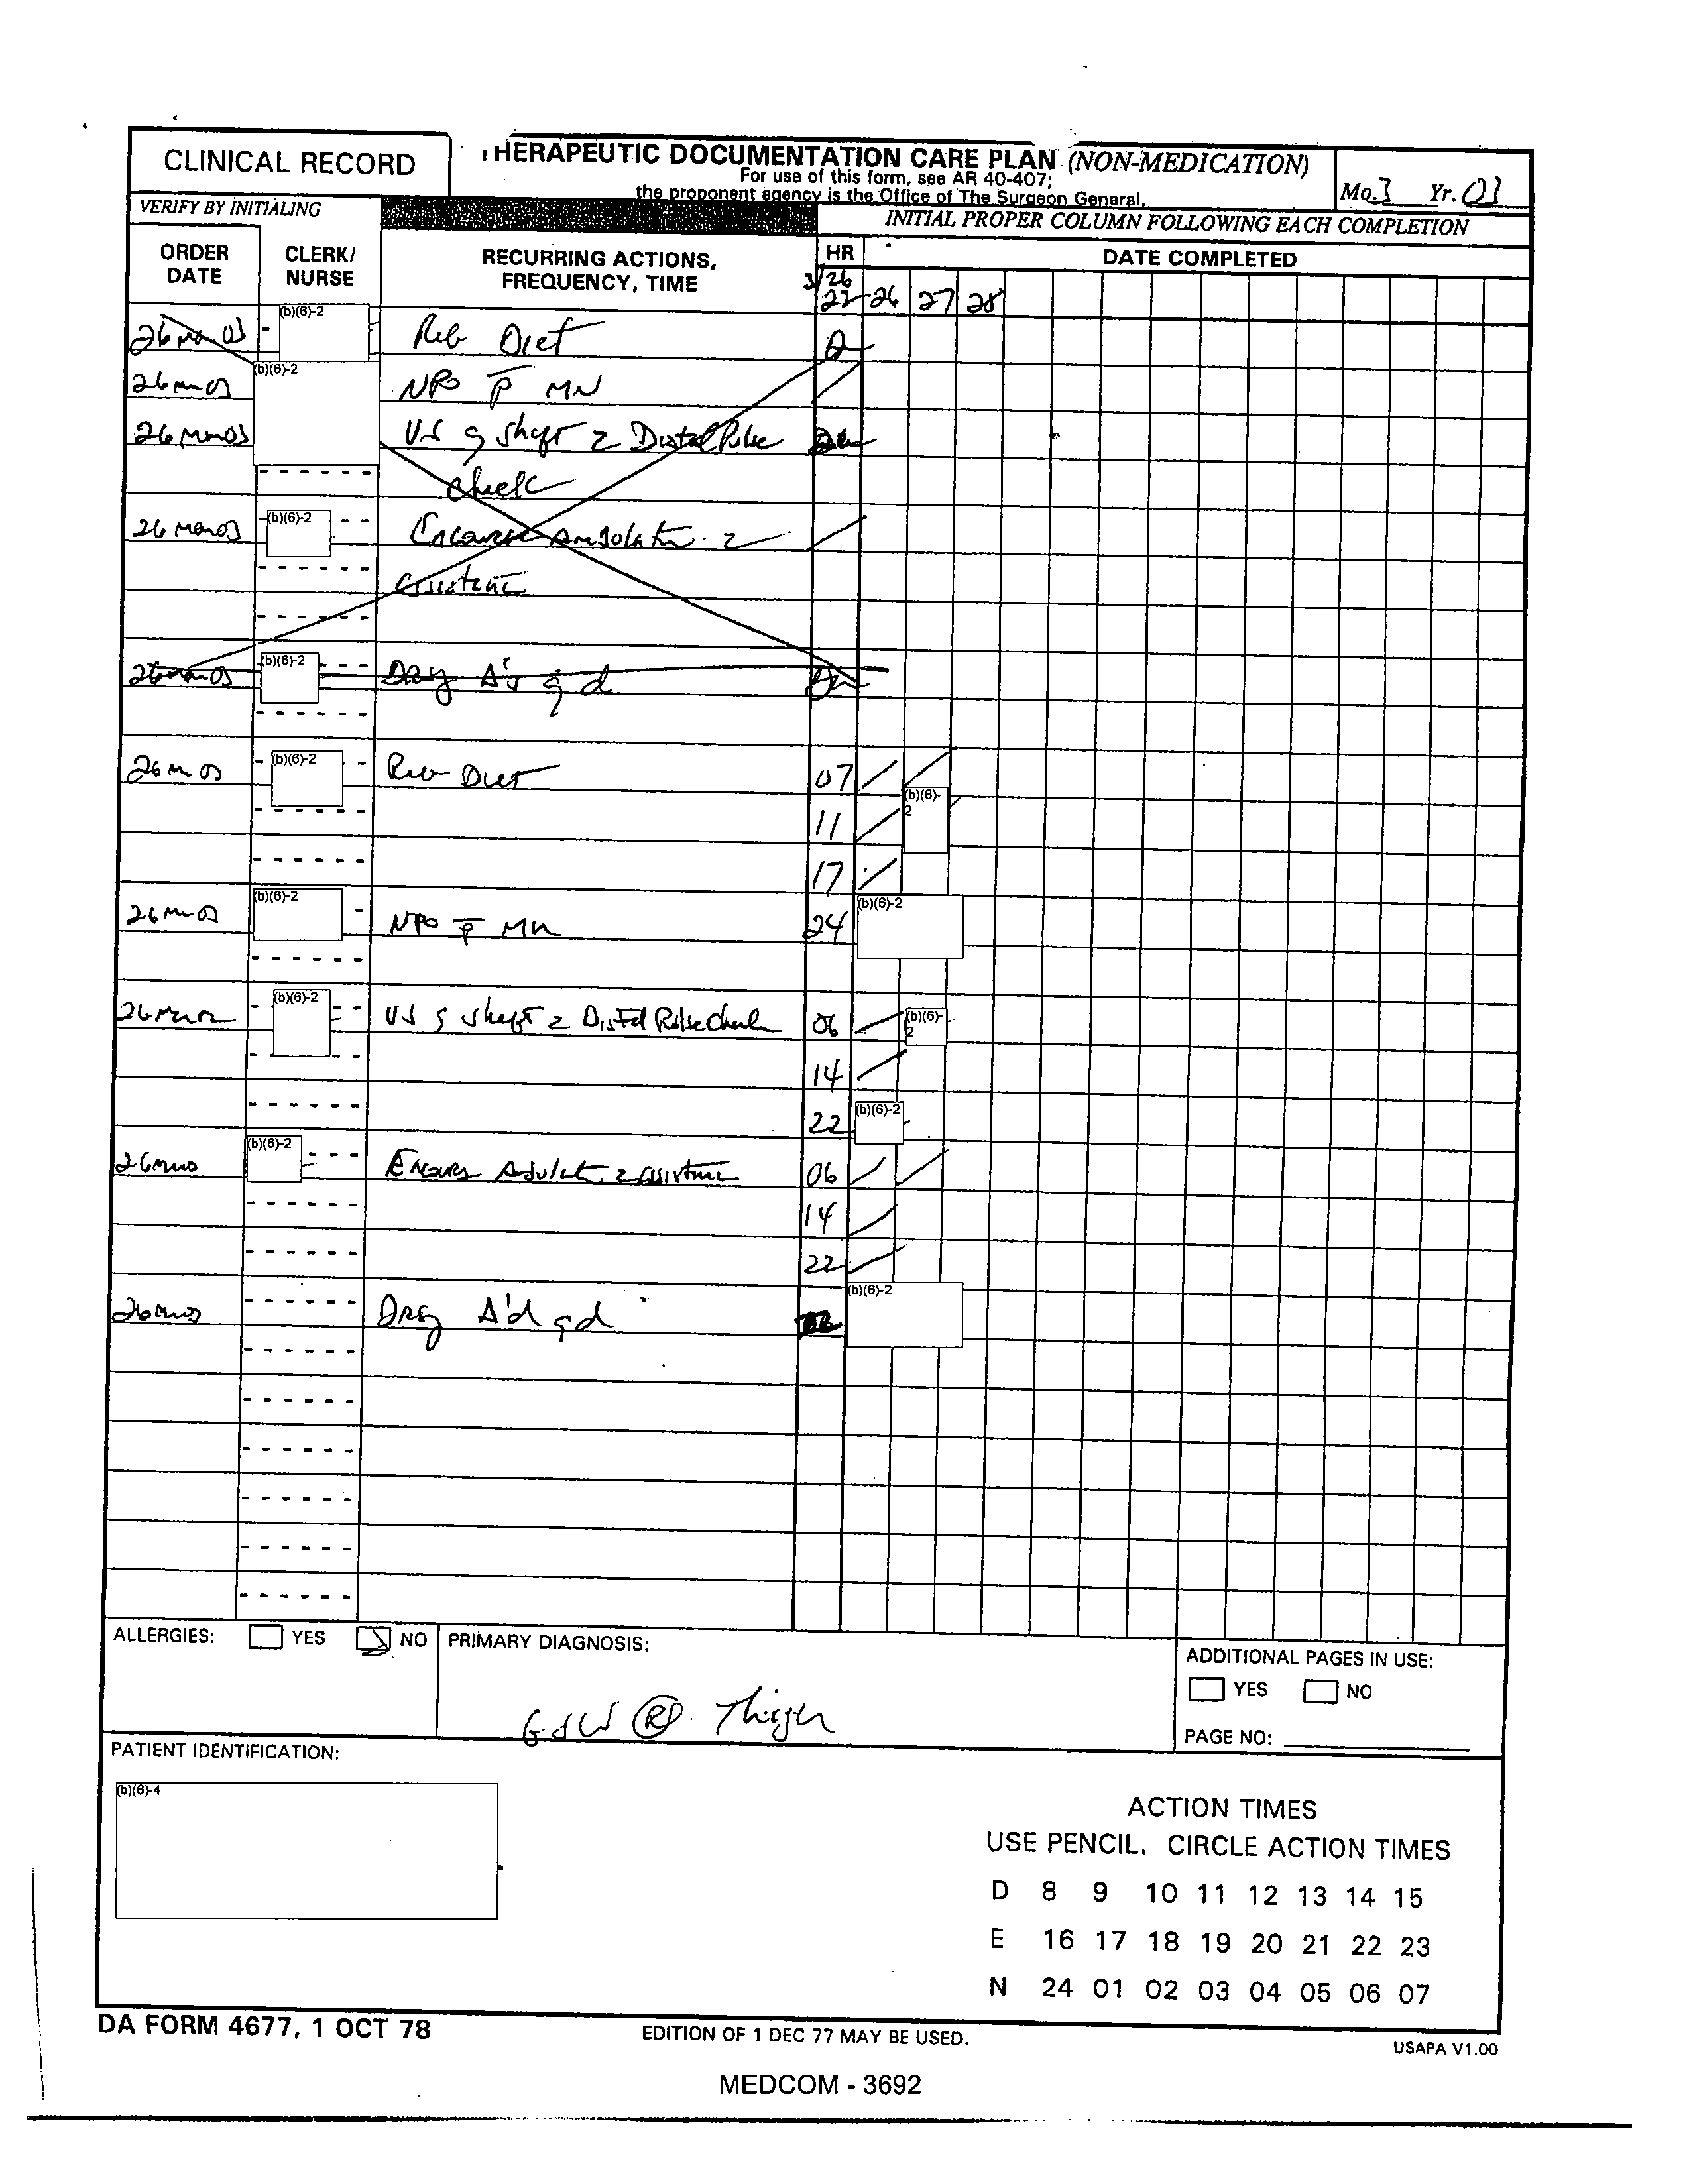 CLINICAL RECORD
THERAPEUTIC DOCUMENTATION CARE PLAN (NON-MEDICATION)
For use of this form, see AR 40-407;
the proponent agency is the Office of The Surgeon General.
Mo. 3 Yr. 03
VERIFY BY INITIALING
INITIAL PROPER COLUMN FOLLOWING EACH COMPLETION
ORDER DATE
CLERK/ NURSE
RECURRING ACTIONS, FREQUENCY, TIME
HR
DATE COMPLETED
3/26
22 26 27 28
26 Mar 03 (b)(6)-2 Reg Diet
26 Mar 03 (b)(6)-2 NPO p̄ MN
26 Mar 03 VS q shift c̄ Distal Pulse
check
26 Mar 03 (b)(6)-2 Encourage ambulation c̄
assistance
26 Mar 03 (b)(6)-2 Drsg Δ's qd
26 Mar 03 (b)(6)-2 Reg Diet 07
(b)(6)-2
11
17
26 Mar 03 (b)(6)-2 NPO p̄ MN 24 (b)(6)-2
26 Mar (b)(6)-2 VS q shift c̄ Distal Pulse check 06 (b)(6)-2
14
22 (b)(6)-2
26 Mar 03 (b)(6)-2 Encourage Ambulation c̄ assistance 06
14
22
26 Mar 03 Drsg Δ'd qd (b)(6)-2
ALLERGIES: YES NO
PRIMARY DIAGNOSIS:
GSW Ⓡ Thigh
ADDITIONAL PAGES IN USE:
YES NO
PAGE NO:
PATIENT IDENTIFICATION:
(b)(6)-4
ACTION TIMES
USE PENCIL. CIRCLE ACTION TIMES
D 8 9 10 11 12 13 14 15
E 16 17 18 19 20 21 22 23
N 24 01 02 03 04 05 06 07
DA FORM 4677, 1 OCT 78
EDITION OF 1 DEC 77 MAY BE USED.
USAPA V1.00
MEDCOM - 3692